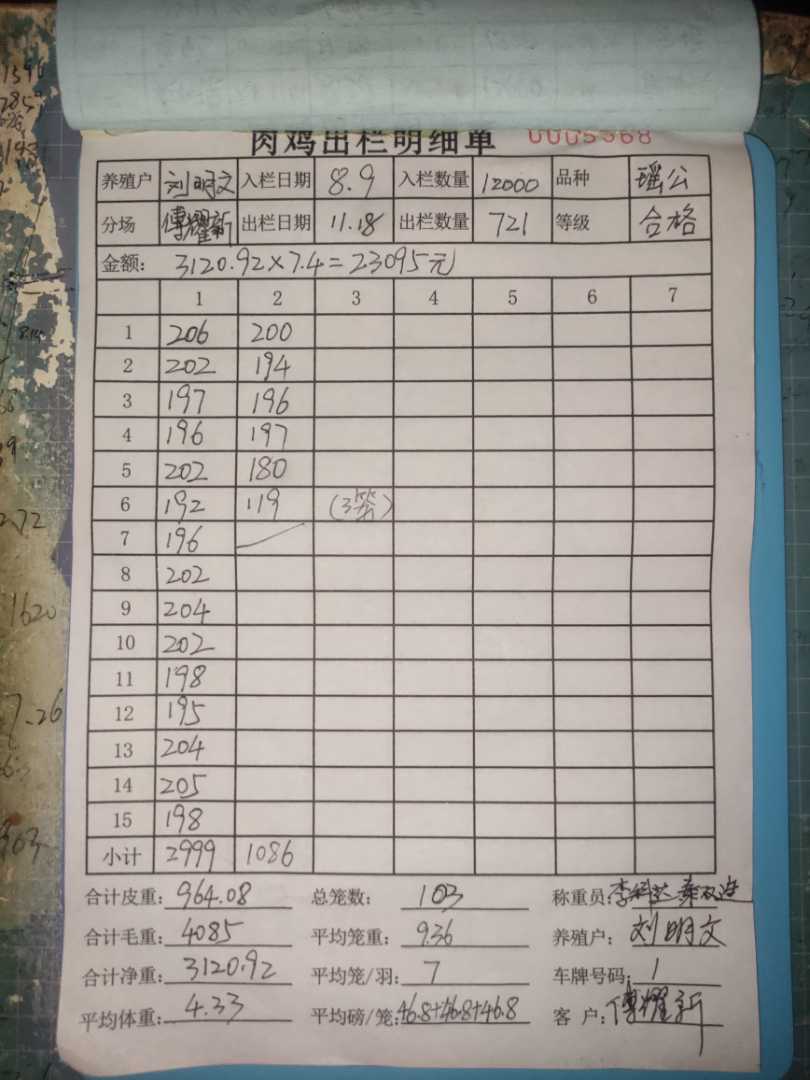 肉鸡出栏明细单 0005568
养殖户 刘明文 入栏日期 8.9 入栏数量 12000 品种 瑶公
分场 傅耀新 出栏日期 11.18 出栏数量 721 等级 合格
金额: 3120.92×7.4=23095元
1 2 3 4 5 6 7
1 206 200
2 202 194
3 197 196
4 196 197
5 202 180
6 192 119 (3笼)
7 196
8 202
9 204
10 202
11 198
12 195
13 204
14 205
15 198
小计 2999 1086
合计皮重: 964.08 总笼数: 103 称重员:
合计毛重: 4085 平均笼重: 9.36 养殖户: 刘明文
合计净重: 3120.92 平均笼/羽: 7 车牌号码: 1
平均体重: 4.33 平均磅/笼: 46.8+46.8+46.8 客户: 傅耀新